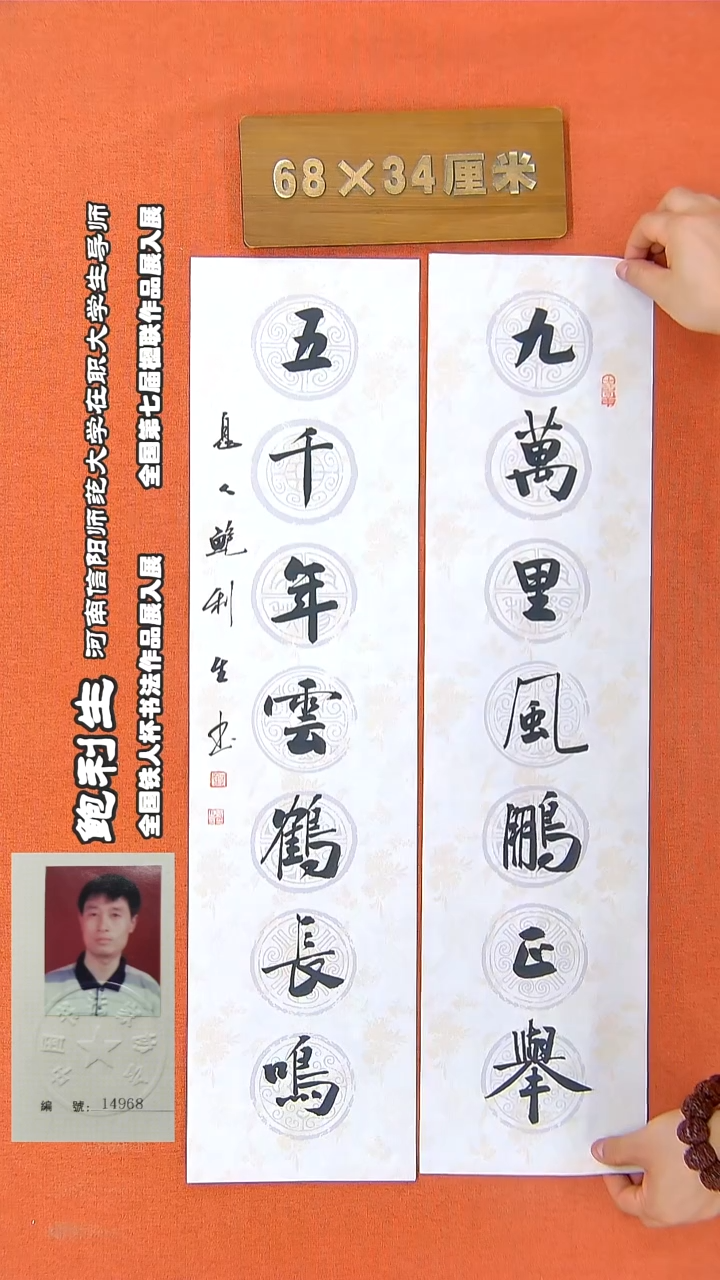 68×34厘米
九萬里風鵬正舉
五千年雲鶴長鳴
鮑利生书
鲍利生
河南信阳师范大学在职大学生导师
全国第七届楹联作品展入展
全国铁人杯书法作品展入展
編 號: 14968